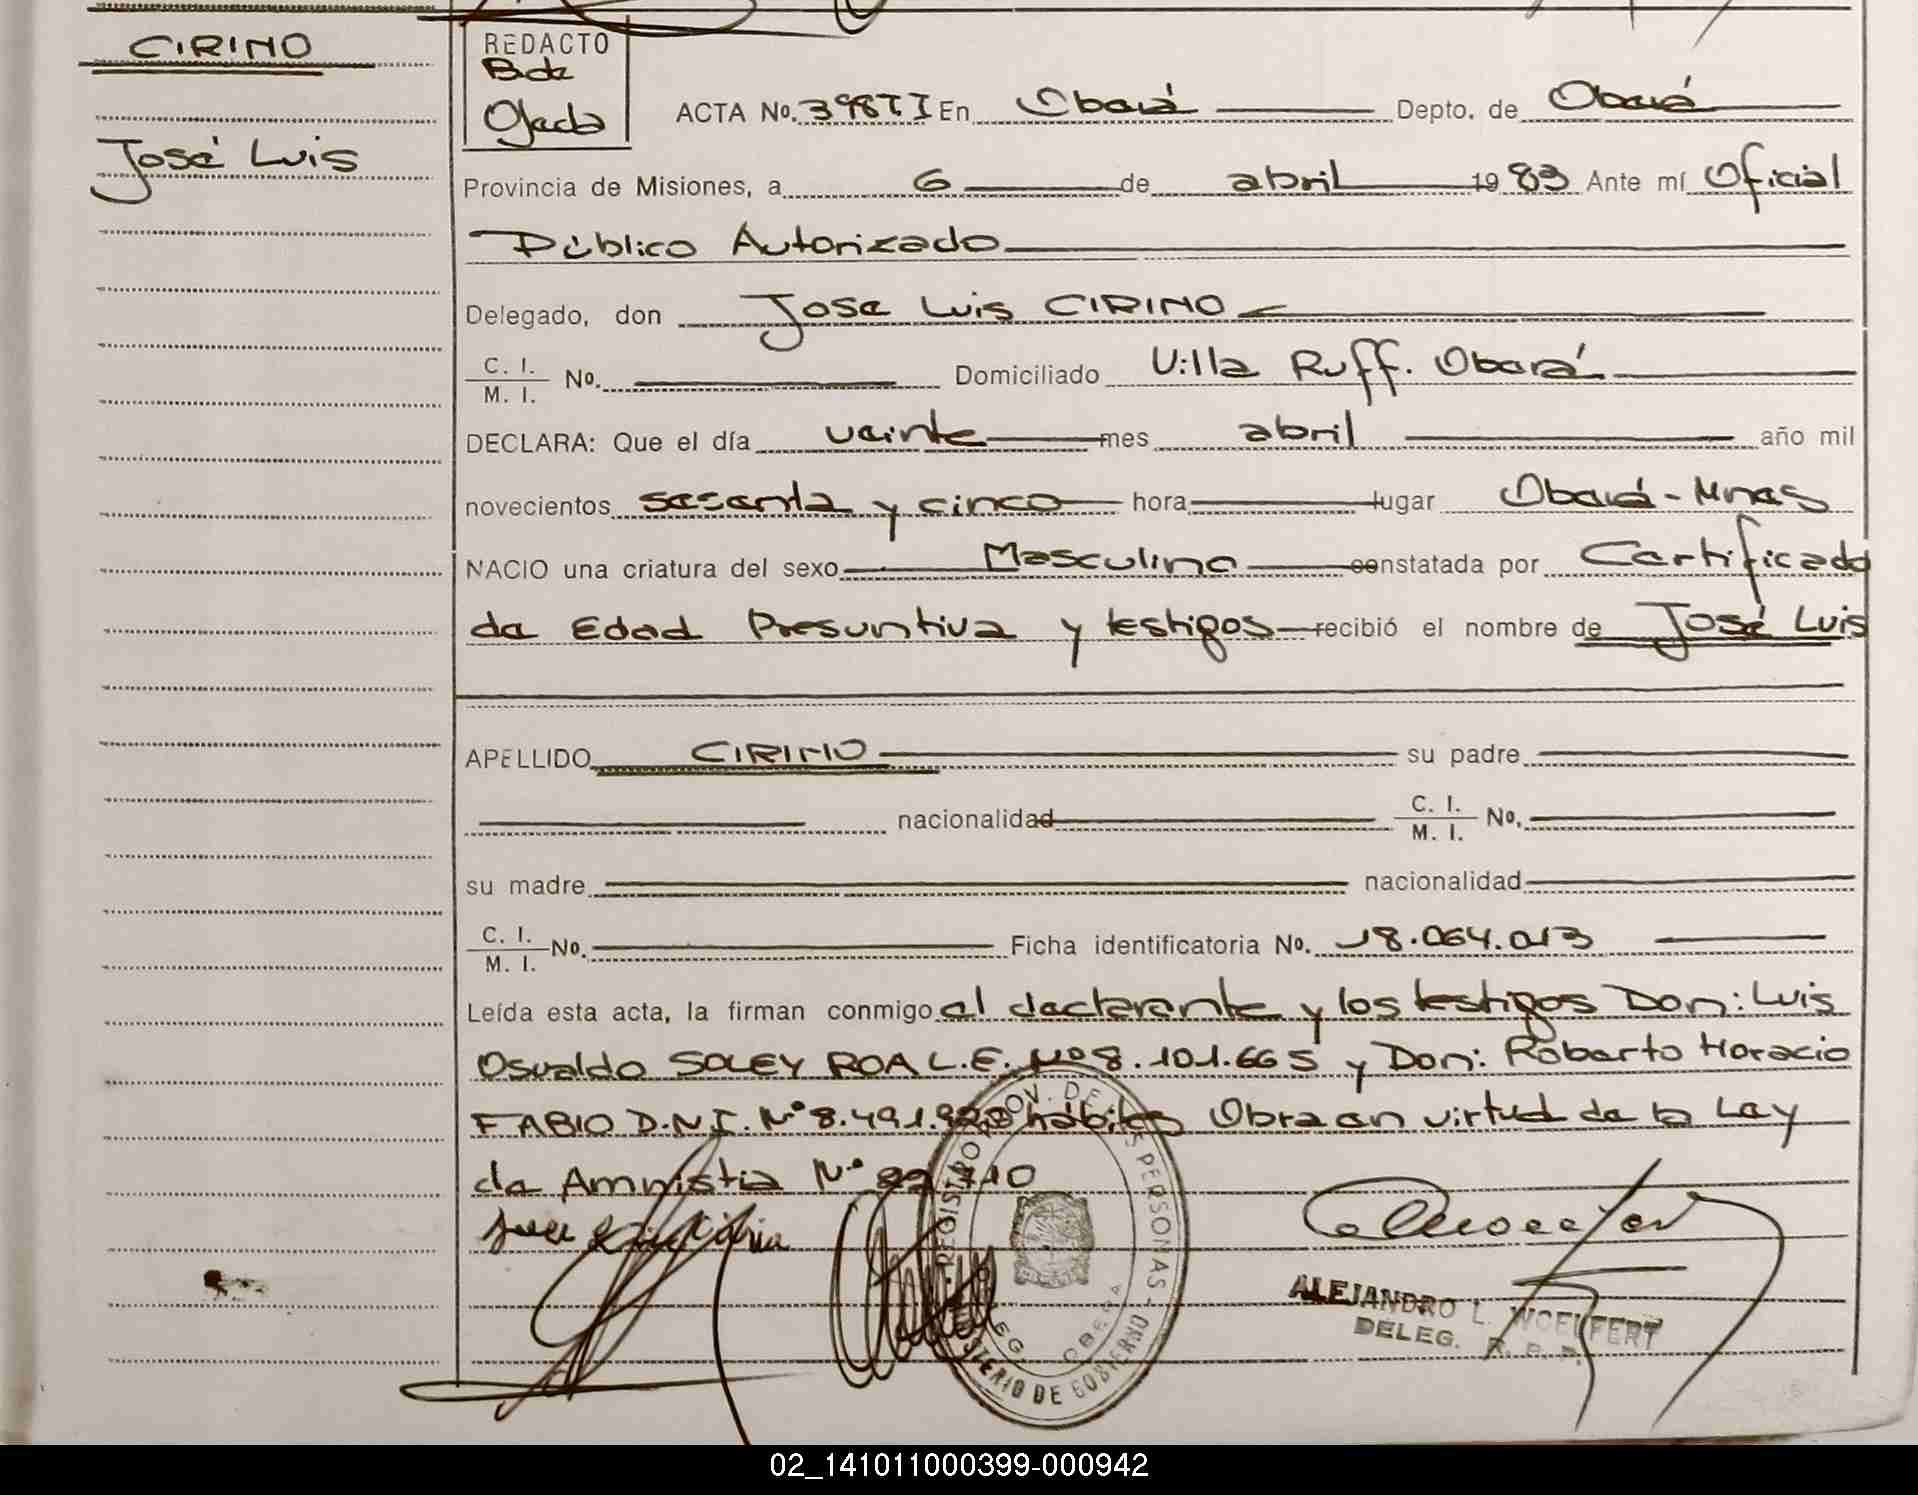 CIRINO
José Luis
REDACTO
Bde
Ojeda
ACTA No. 398TI En Oberá Depto. de Oberá
Provincia de Misiones, a 6 de abril 1983 Ante mí Oficial
Público Autorizado
Delegado, don Jose Luis CIRINO
C. I.
M. I. No. Domiciliado Villa Ruff. Oberá
DECLARA: Que el día veinte mes abril año mil
novecientos sesenta y cinco hora lugar Oberá - Mnes
NACIO una criatura del sexo Masculino constatada por Certificado
de Edad Presuntiva y testigos recibió el nombre de José Luis
APELLIDO CIRINO su padre
nacionalidad C. I.
M. I. No.
su madre nacionalidad
C. I.
M. I. No. Ficha identificatoria No. 18.064.013
Leída esta acta, la firman conmigo el declarante y los testigos Don: Luis
Osvaldo SOLEY ROA L.E. Nº 8.101.665 y Don: Roberto Horacio
FABIO D.N.I. Nº 8.491. hábiles Obra en virtud de la Ley
de Amnistia Nº
REGISTRO PROV. DE LAS PERSONAS
MINISTERIO DE GOBIERNO
DELEG. OBERA
ALEJANDRO L. WOELFERT
DELEG. R. P. P.
02_141011000399-000942